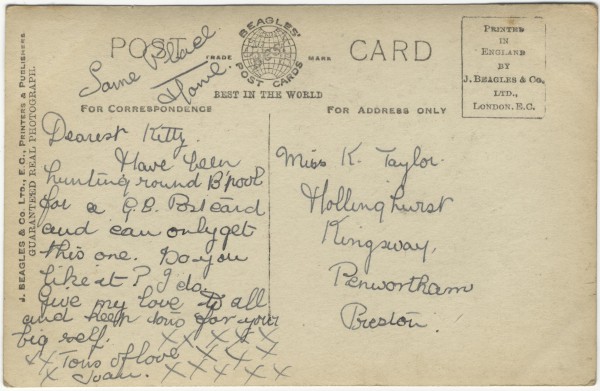 POST CARD
BEAGLES'
POST CARDS
TRADE MARK
BEST IN THE WORLD
PRINTED
IN
ENGLAND
BY
J. BEAGLES & CO.
LTD.,
LONDON. E.C.
J. BEAGLES & CO. LTD., E.C., PRINTERS & PUBLISHERS
GUARANTEED REAL PHOTOGRAPH.
FOR CORRESPONDENCE
FOR ADDRESS ONLY
Same Place
Home.
Dearest Kitty.
Have been
hunting round B'pool
for a G.E. Postcard
and can only get
this one. Do you
like it? I do.
Give my love to all
and keep tons for your
big self. XXXXX
XX Tons of love XXXX
X Joan. XXXXXX
Miss K. Taylor.
Hollinghurst
Kingsway,
Penwortham
Preston.